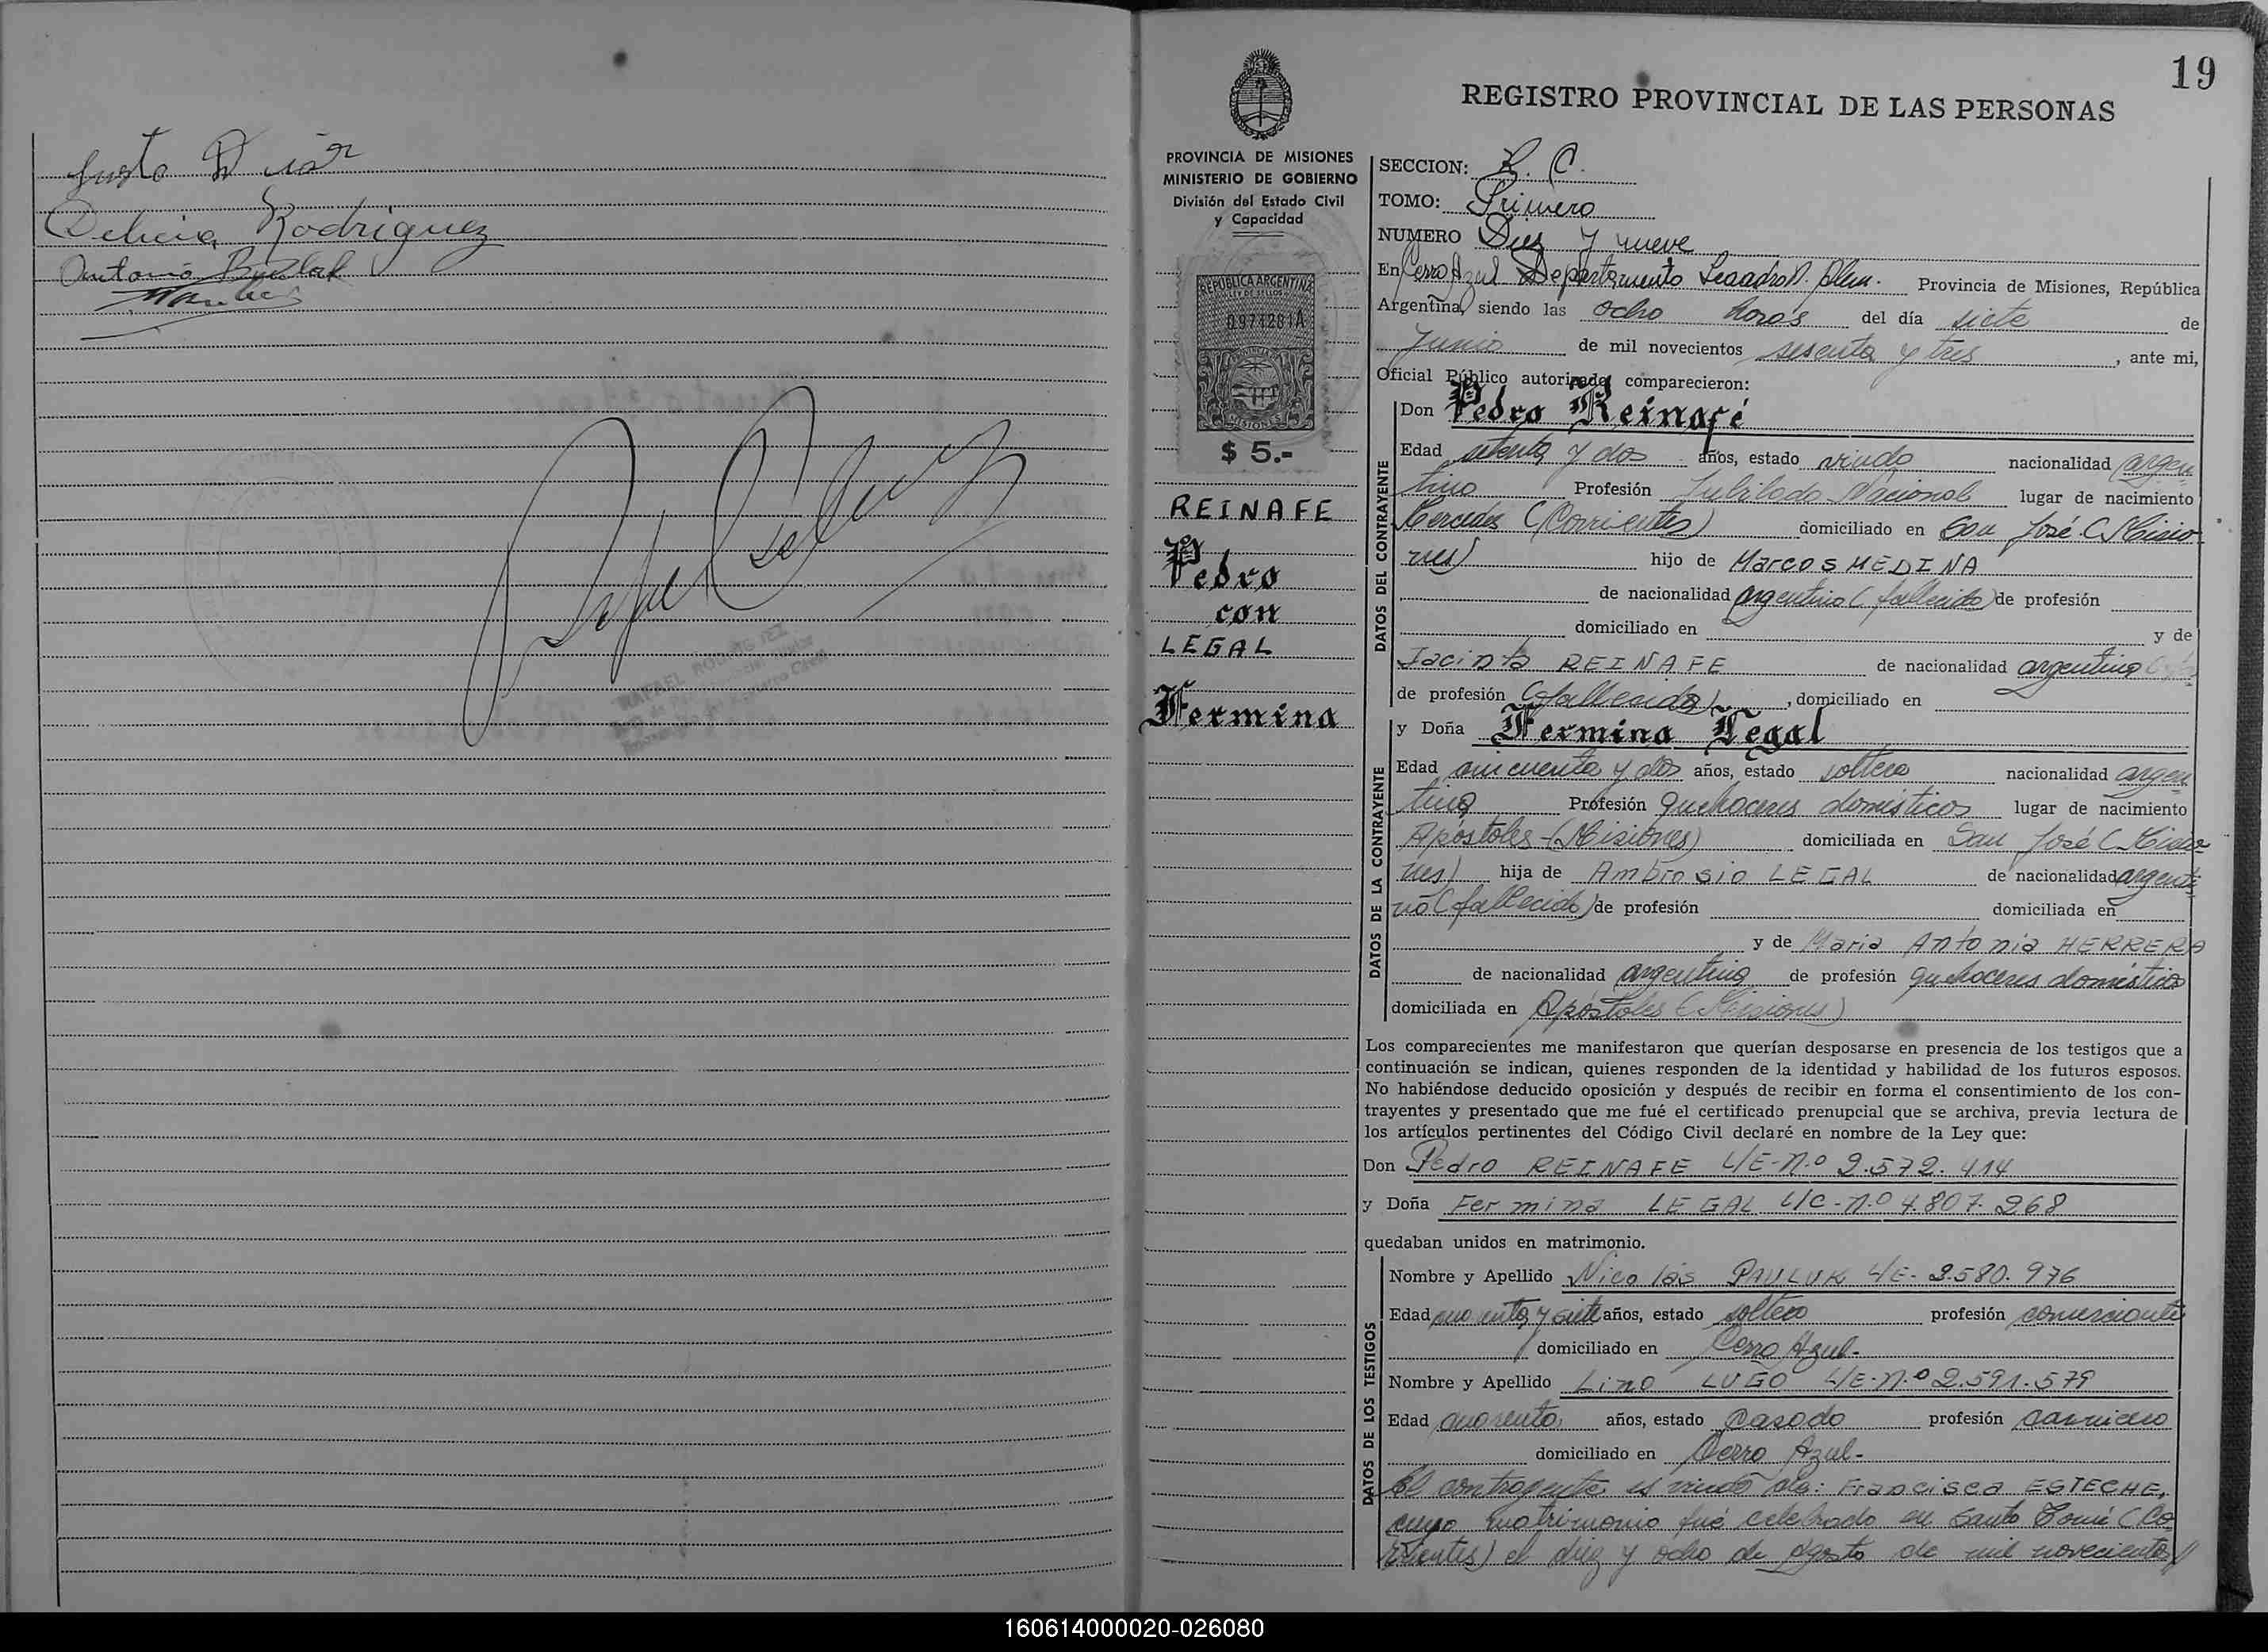 Justo Diaz
Delicia Rodriguez
Antonio
RAFAEL RODRIGUEZ
19
REGISTRO PROVINCIAL DE LAS PERSONAS
PROVINCIA DE MISIONES
MINISTERIO DE GOBIERNO
División del Estado Civil
y Capacidad
REPUBLICA ARGENTINA
LEY DE SELLOS
0971281A
PROVINCIA DE
MISIONES
$ 5.-
REINAFE
Pedro
con
LEGAL
Fermina
SECCION: R. C.
TOMO: Primero
NUMERO Diez y nueve
En Cerro Azul Departamento Leandro N. Alem. Provincia de Misiones, República
Argentina, siendo las ocho horas del día siete de
Junio de mil novecientos sesenta y tres, ante mi,
Oficial Público autorizado, comparecieron:
DATOS DEL CONTRAYENTE
Don Pedro Reinafé
Edad setenta y dos años, estado viudo nacionalidad argen
tino Profesión Jubilado Nacional lugar de nacimiento
Mercedes (Corrientes) domiciliado en San José (Misio-
nes) hijo de Marcos MEDINA
de nacionalidad argentino (fallecido) de profesión
domiciliado en y de
Jacinta REINAFE de nacionalidad argentina
de profesión (fallecida), domiciliado en
DATOS DE LA CONTRAYENTE
y Doña Fermina Legal
Edad cincuenta y dos años, estado soltera nacionalidad argen
tina Profesión quehaceres domésticos lugar de nacimiento
Apóstoles-(Misiones) domiciliada en San José (Misio-
nes) hija de Ambrosio LEGAL de nacionalidad argenti-
no (fallecido) de profesión domiciliada en
y de Maria Antonia HERRERA
de nacionalidad argentina de profesión quehaceres domésticos
domiciliada en Apóstoles (Misiones)
Los comparecientes me manifestaron que querían desposarse en presencia de los testigos que a
continuación se indican, quienes responden de la identidad y habilidad de los futuros esposos.
No habiéndose deducido oposición y después de recibir en forma el consentimiento de los con-
trayentes y presentado que me fué el certificado prenupcial que se archiva, previa lectura de
los artículos pertinentes del Código Civil declaré en nombre de la Ley que:
Don Pedro REINAFE L/E-n.o 2.572.414
y Doña Fermina LEGAL L/C-n.o 4.807.268
quedaban unidos en matrimonio.
DATOS DE LOS TESTIGOS
Nombre y Apellido Nicolás PAULUK L/E-2.580.976
Edad cuarenta y siete años, estado soltero profesión comerciante
domiciliado en Cerro Azul-
Nombre y Apellido Lino LUGO L/E-n.o 2.591.579
Edad cuarenta años, estado casado profesión carnicero
domiciliado en Cerro Azul-
El contrayente es viudo de: Francisca ESTECHE,
cuyo matrimonio fué celebrado en Santo Tomé (Co-
rrientes) el diez y ocho de Agosto de mil novecientos//
160614000020-026080